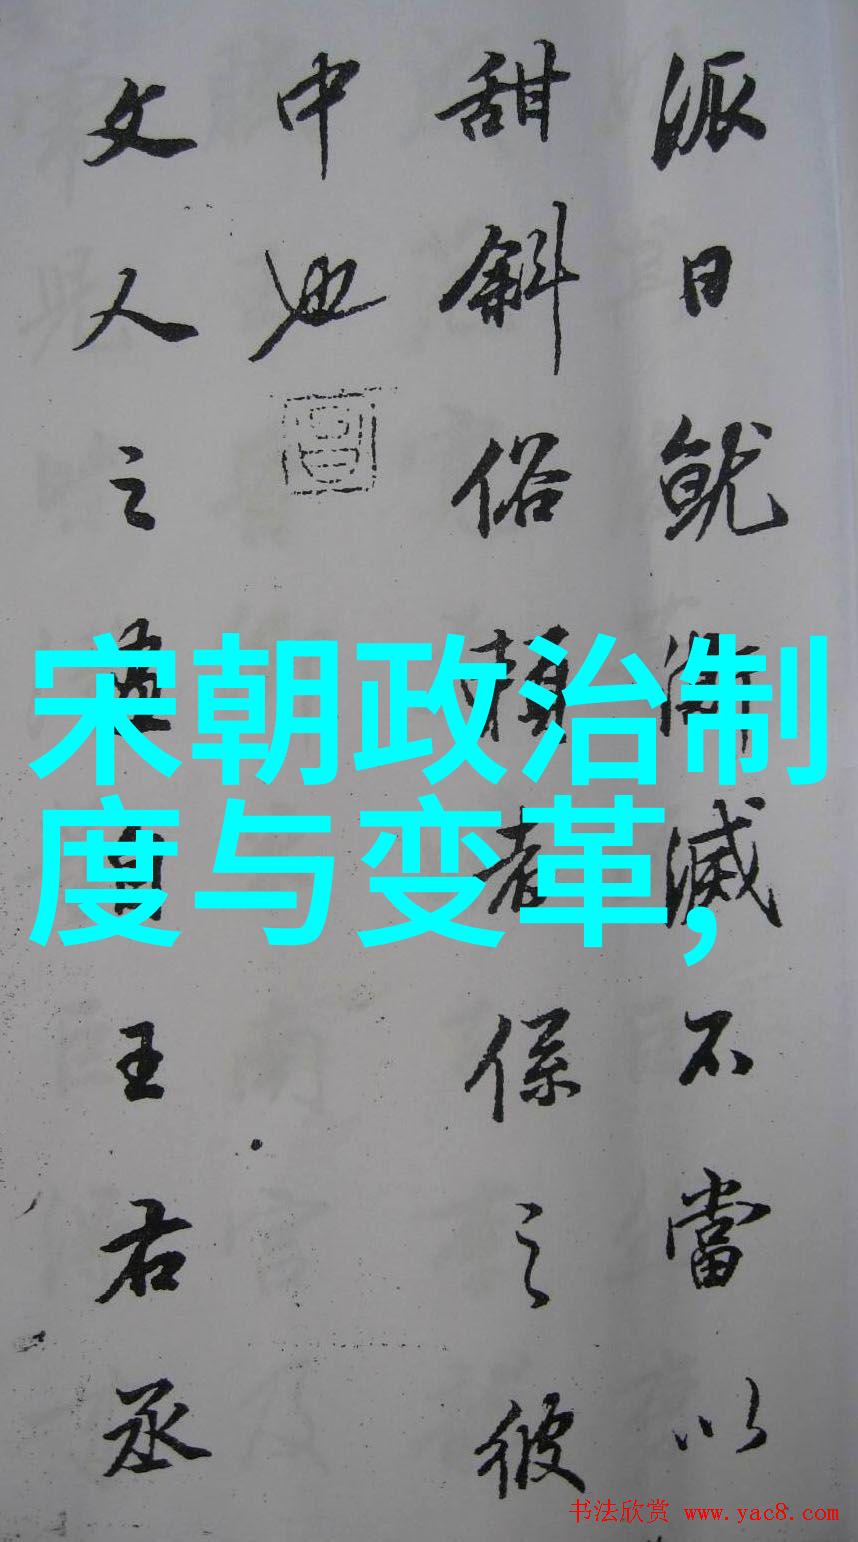 宋朝政治制
度与变革,
派日就澌滅不當以
甜斜俗頼者係之彼
中也
文人之畫自王右丞
书法欣赏 www.yac8.com